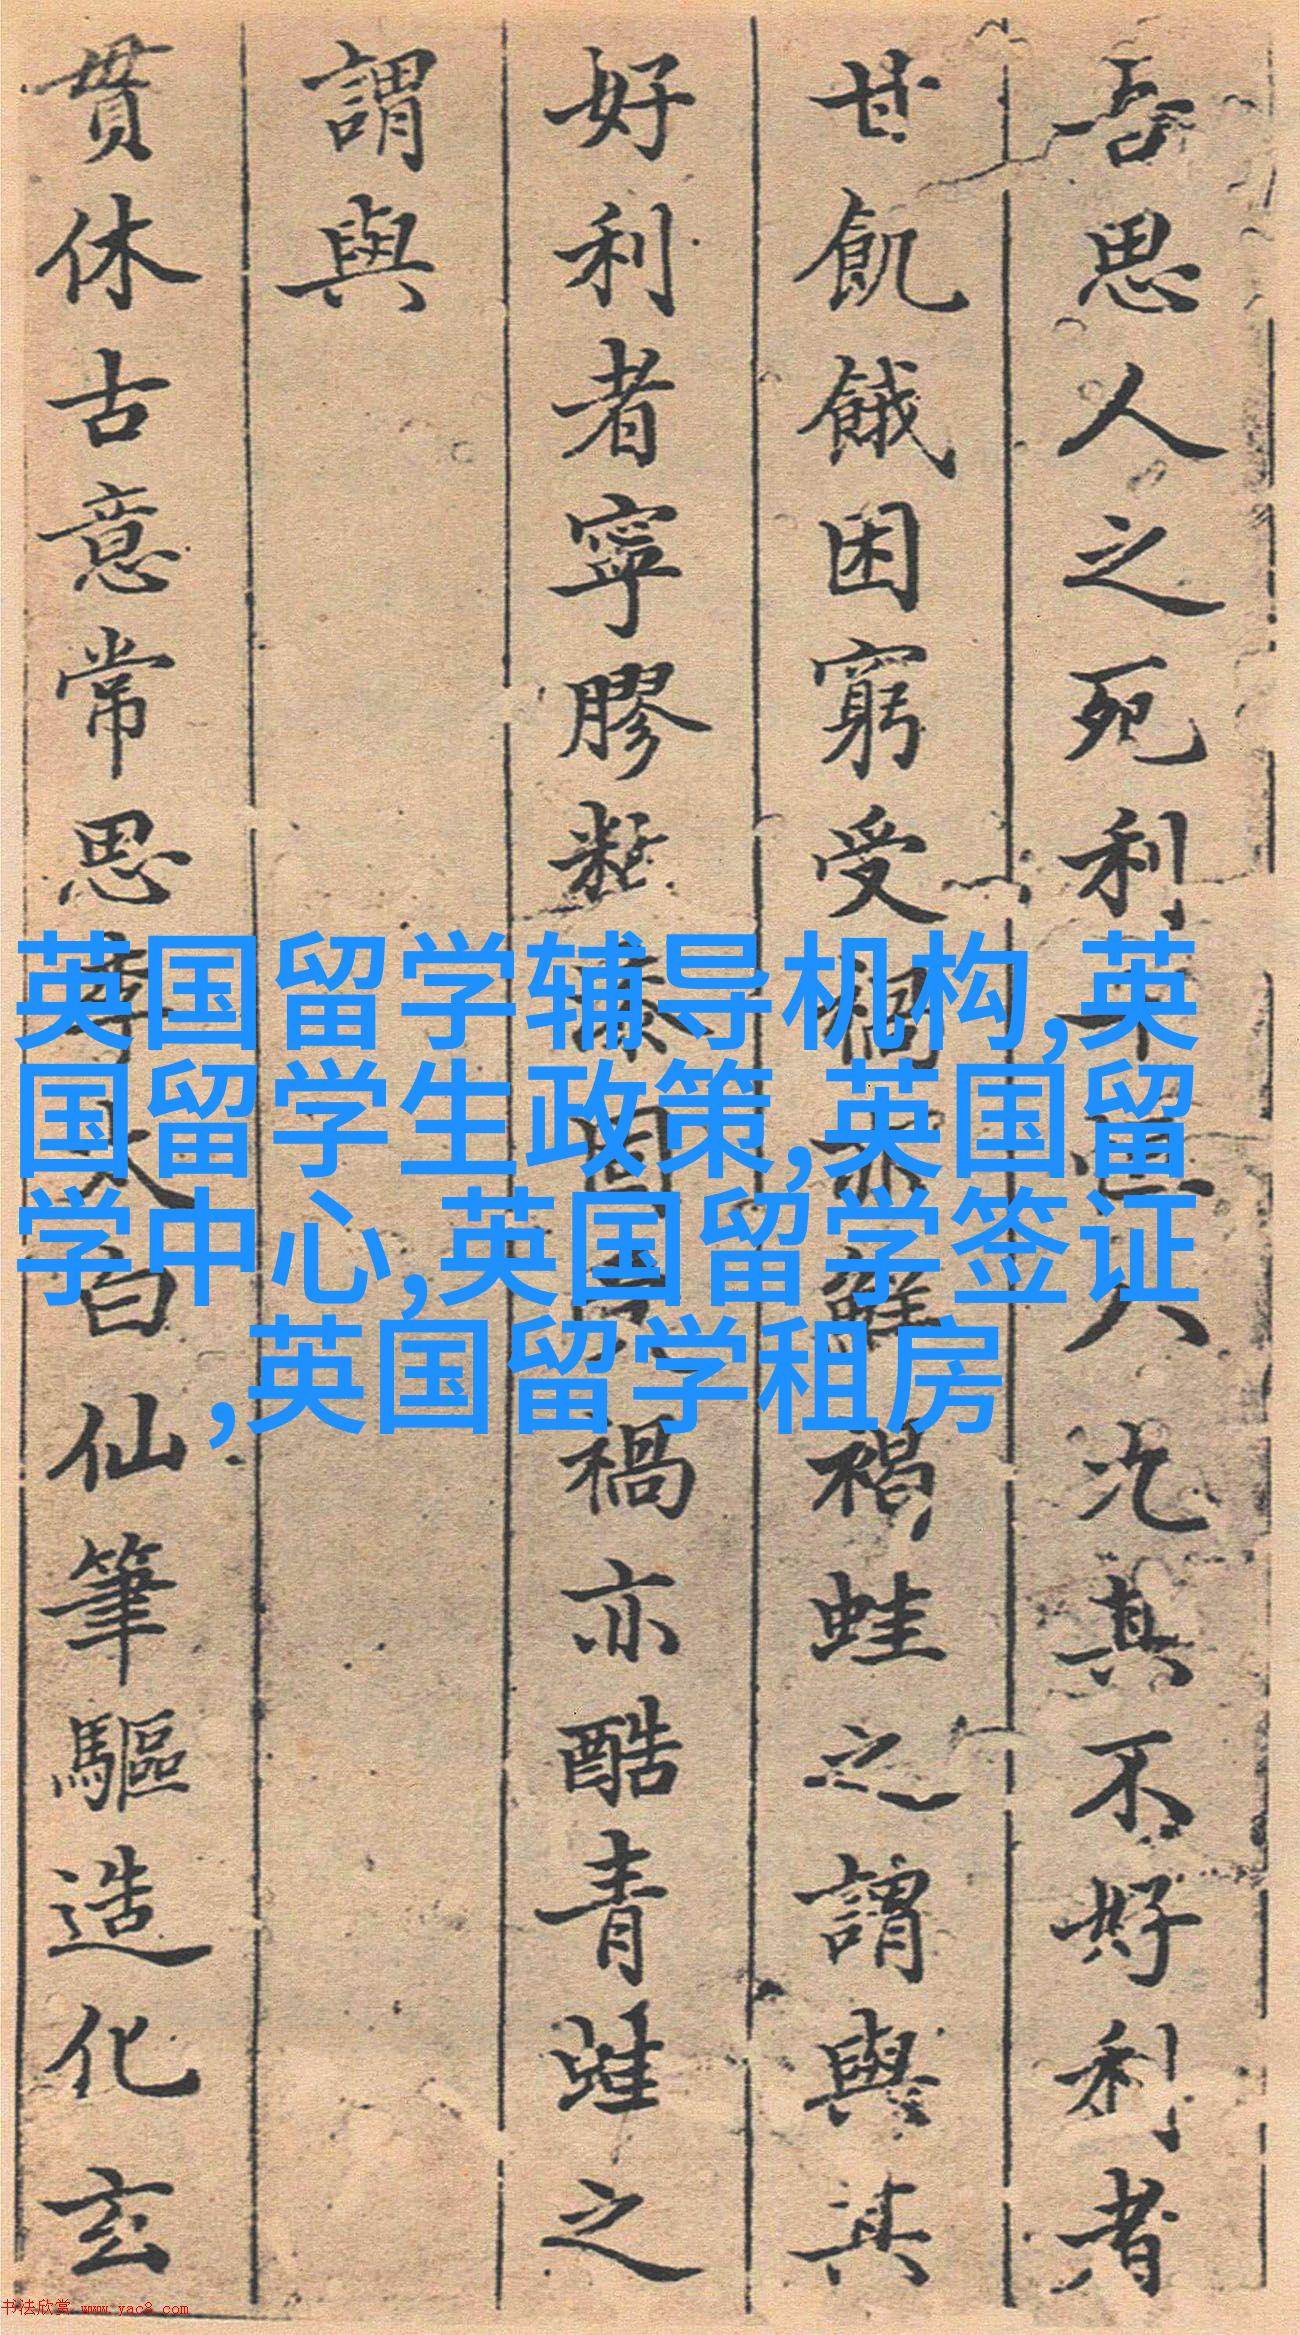 吾思人之死利 况其不好利者
甘飢餓困窮受禍亦 褐蛙之謂與其
好利者寧膠黏漆固 禍亦酷青蛙之
謂與
貫休古意常思李太白仙筆驅造化玄
英国留学辅导机构,英
国留学生政策,英国留
学中心,英国留学签证
,英国留学租房
书法欣赏 www.yac8.com